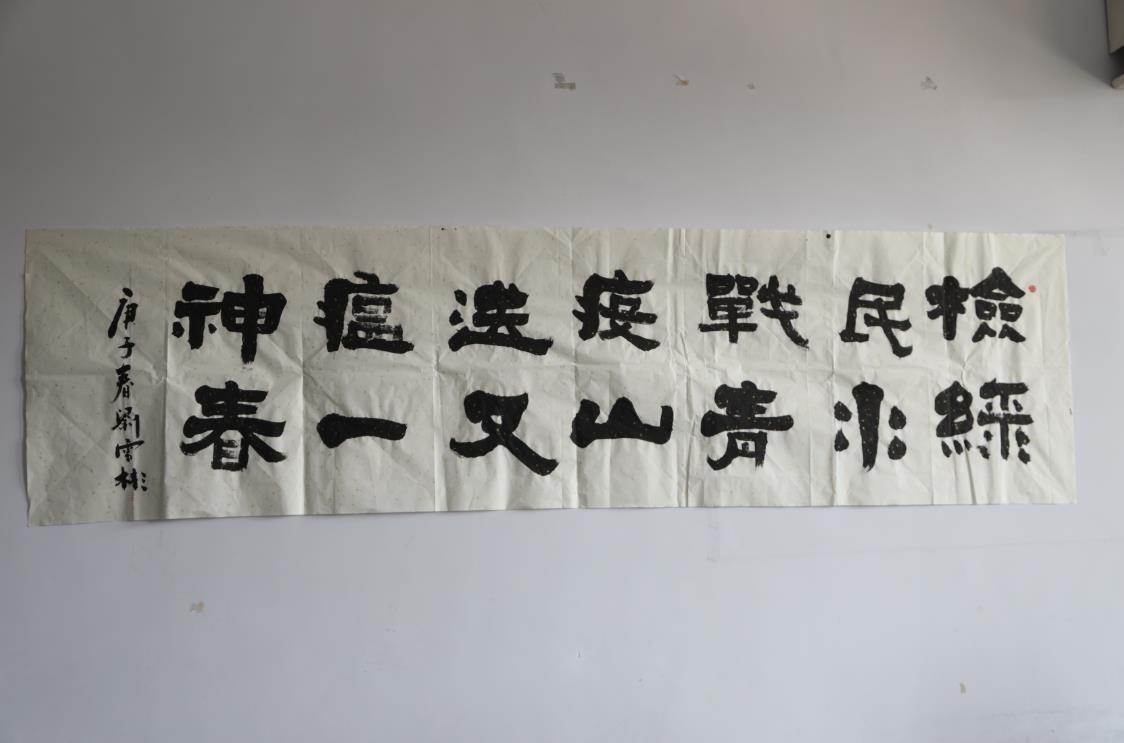 檢民戰疫送瘟神
綠水青山又一春
庚子春劉雪彬